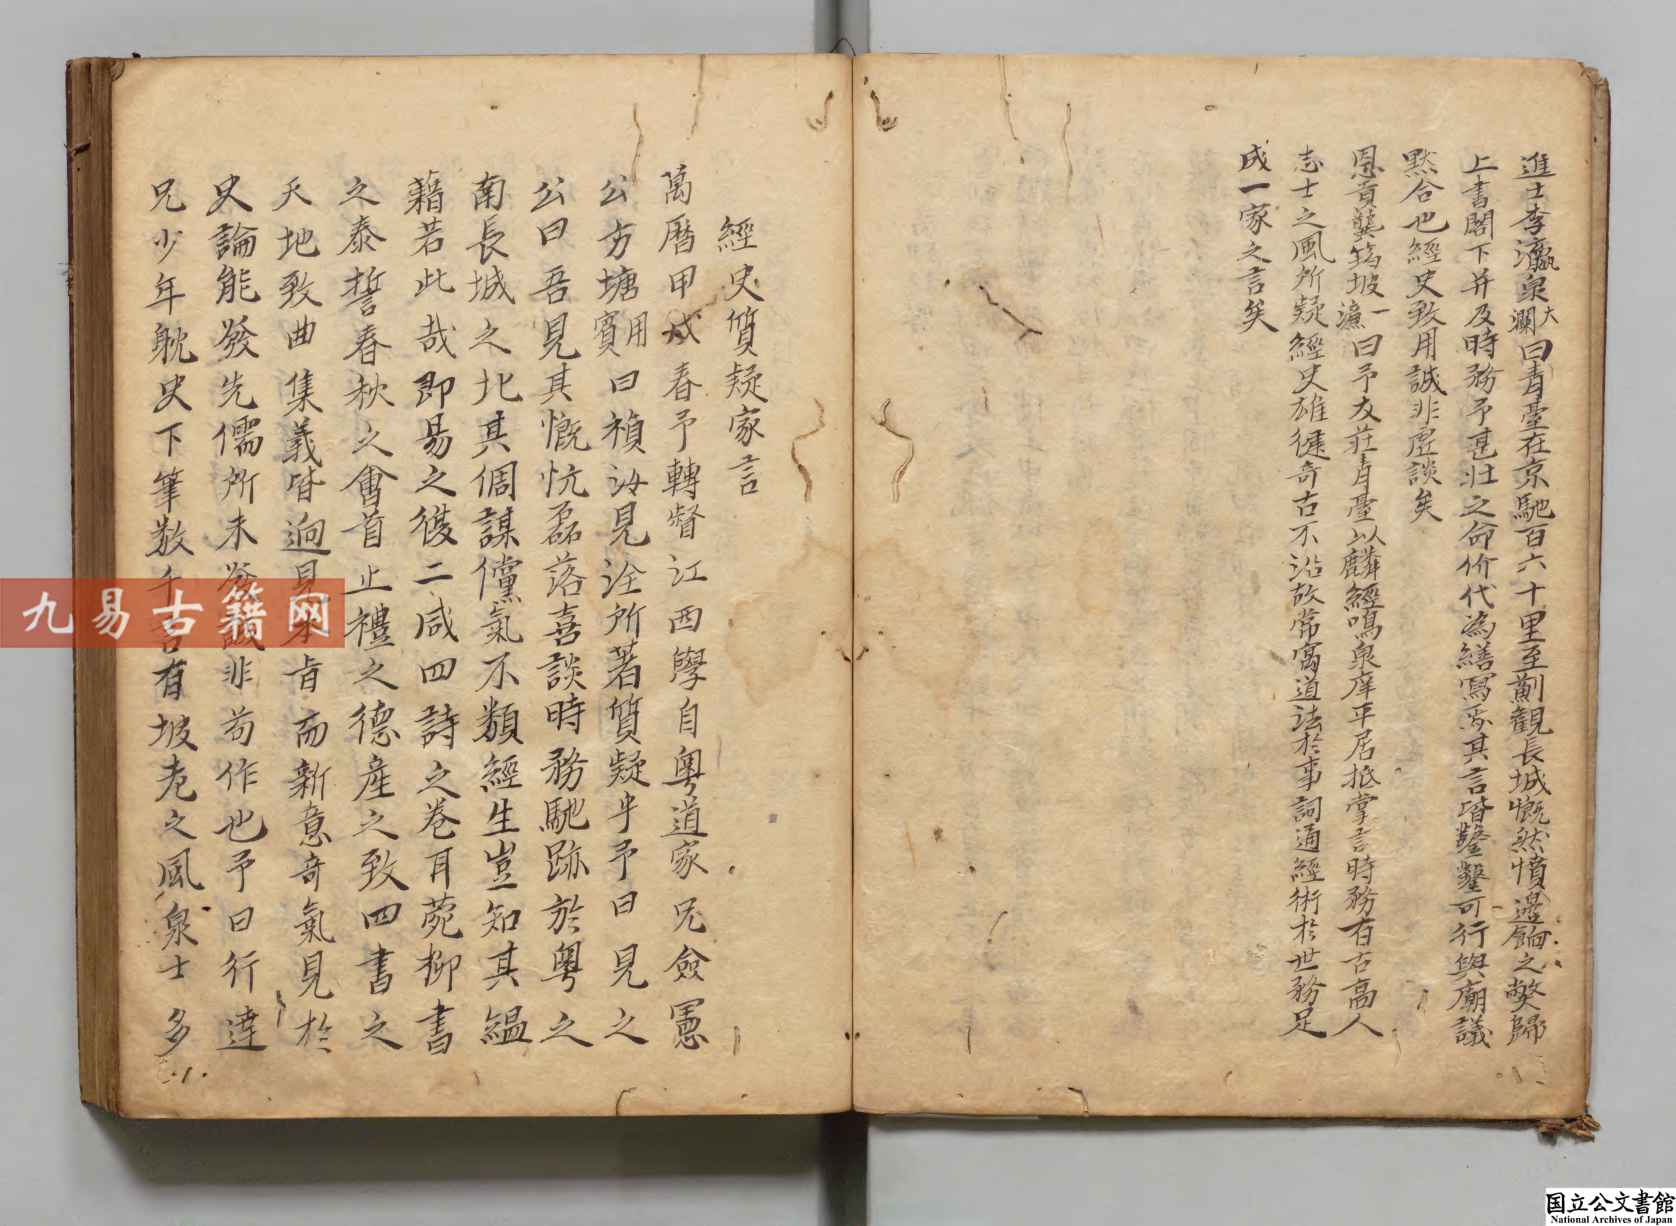 進士李瀛泉大瀾曰青臺在京馳百六十里至薊觀長城慨然憤邊餉之弊歸
上書閣下并及時務予甚壯之命价代為繕寫焉其言皆鑿鑿可行與廟議
黙合也經史致用誠非虛談矣
恩貢龔筠坡一濂曰予友莊青臺以麟經鳴泉庠平居抵掌言時務有古高人
志士之風所疑經史雄健奇古不沿故常寓道法於事詞通經術於世務足
成一家之言矣
經史質疑家言
萬曆甲戌春予轉督江西學自粵道家兄僉憲
公方塘賓用曰禎汝見詮所著質疑乎予曰見之
公曰吾見其慨忼磊落喜談時務馳跡於粵之
南長城之北其倜謀儻氣不類經生豈知其縕
藉若此哉即易之後二咸四詩之卷耳菀柳書
之泰誓春秋之會首止禮之德產之致四書之
天地致曲集義皆逈見本旨而新意奇氣見於
史論能發先儒所未發誠非苟作也予曰行達
兄少年躭史下筆數千言有坡老之風泉士多
九易古籍网
国立公文書館
National Archives of Japan